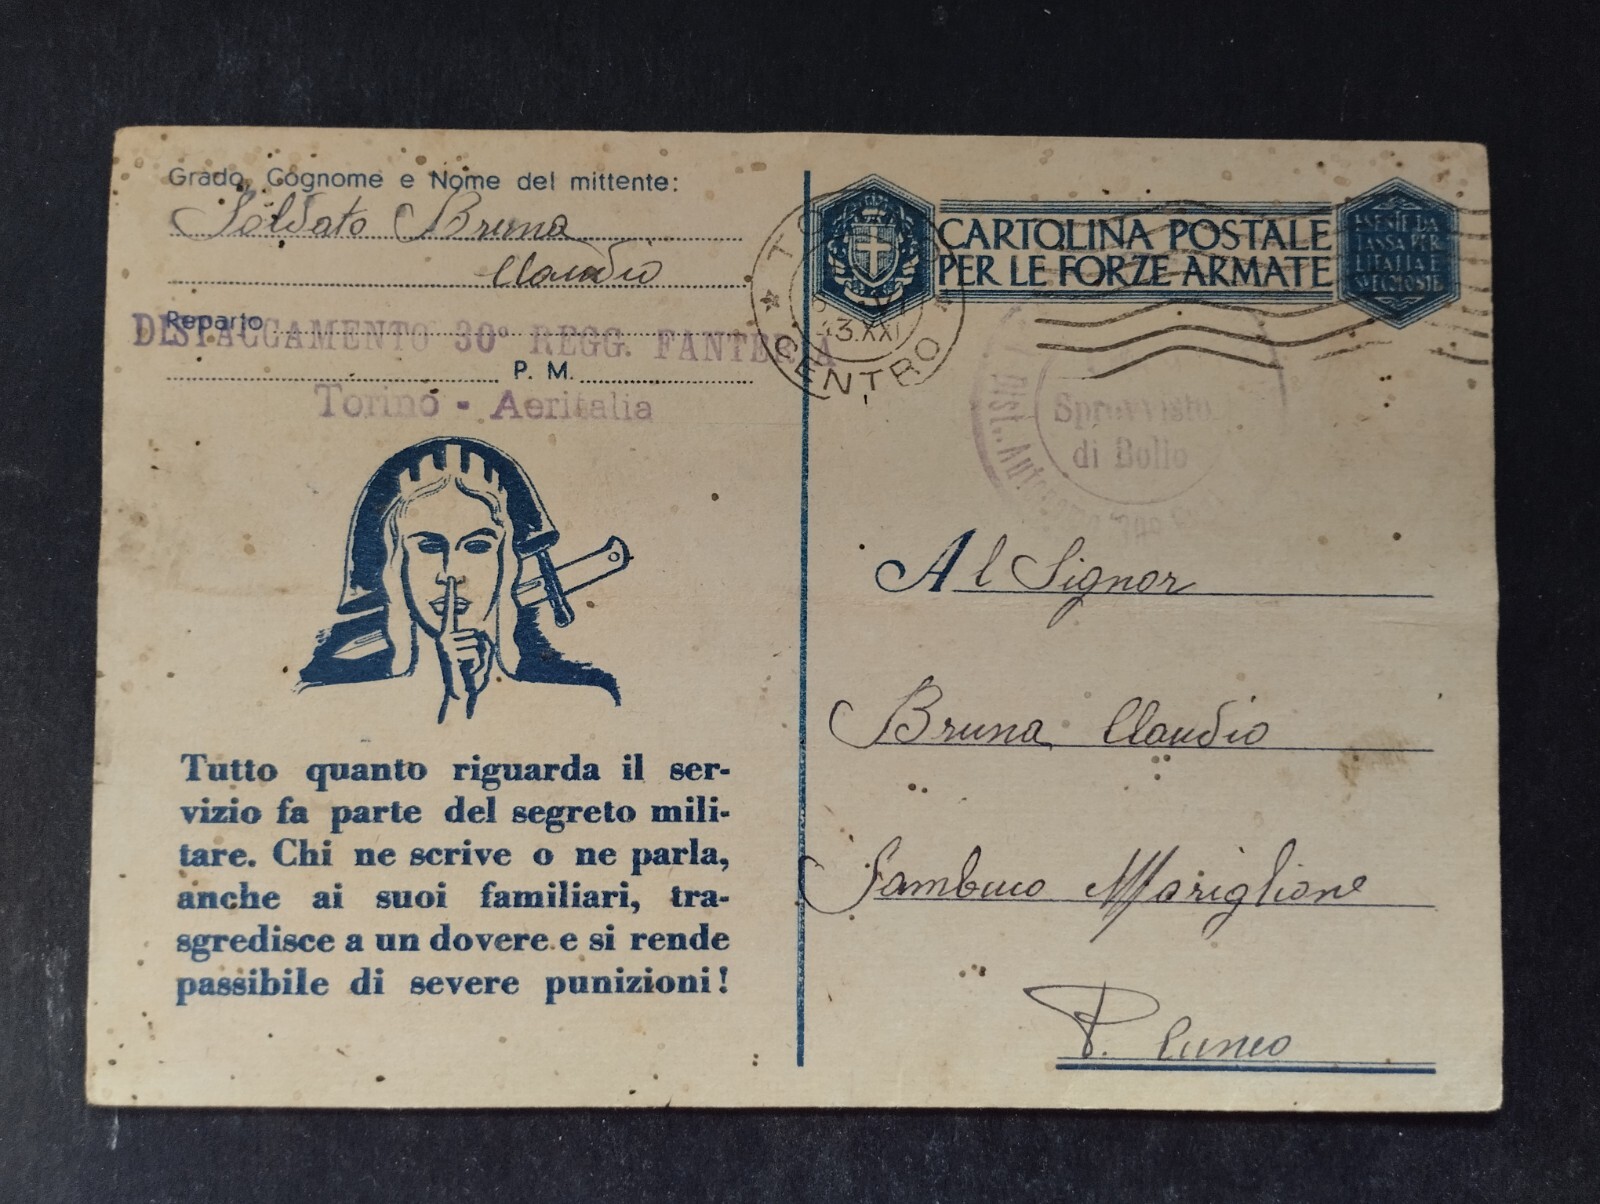 Grado, Cognome e Nome del mittente:
Soldato Bruna
Claudio
Reparto
DISTACCAMENTO 30° REGG. FANTERIA
P. M.
Torino - Aeritalia
Tutto quanto riguarda il ser-
vizio fa parte del segreto mili-
tare. Chi ne scrive o ne parla,
anche ai suoi familiari, tra-
sgredisce a un dovere e si rende
passibile di severe punizioni!
TO
43.XXI
CENTRO
CARTOLINA POSTALE
PER LE FORZE ARMATE
ESENTE DA
TASSA PER
L'ITALIA E
SVE COLONIE
Sprovvisto
di Bollo
Dist.
Al Signor
Bruna Claudio
Sambuco Mariglione
P. Cuneo